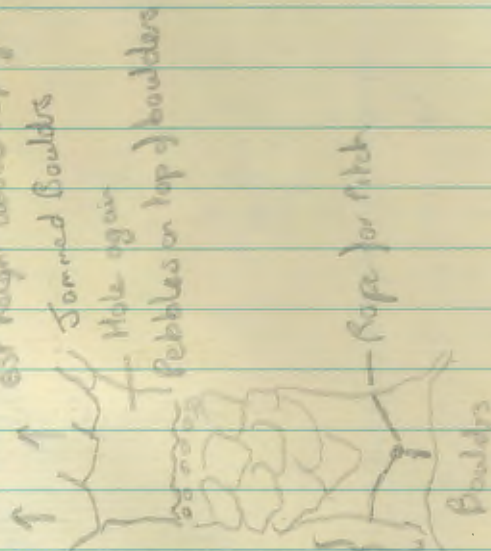 est height above
Jammed Boulders
Hole again
Pebbles on top of boulders
Rope for Pitch
Boulders